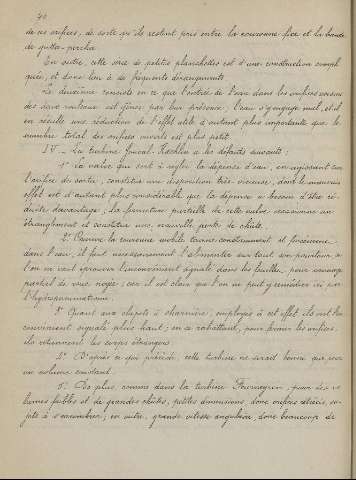 70
de ces orifices, de sorte qu'ils restent pris entre la couronne fixe et la bande
de gutta-percha.
En outre, cette série de petites planchettes est d'une construction compli
quée, et donne lieu à de fréquents dérangements.
Le deuxième consiste en ce que l'entrée de l'eau dans les orifices voisins
des deux rouleaux est gênée par leur présence; l'eau s'y engage mal, et il
en résulte une réduction de l'effet utile d'autant plus importante que le
nombre total des orifices ouverts est plus petit.
IV. - La turbine Jonval-Kœchlin a les défauts suivants:
1° La valve qui sert à régler la dépense d'eau, en agissant sur
l'orifice de sortie, constitue une disposition très-vicieuse, dont le mauvais
effet est d'autant plus considérable que la dépense a besoin d'être ré-
duite davantage; la fermeture partielle de cette valve occasionne un
étranglement et constitue une nouvelle perte de chute.
2° Comme la couronne mobile tourne constamment et forcément
dans l'eau, il faut nécessairement l'alimenter sur tout son pourtour, si
l'on ne veut éprouver l'inconvénient signalé dans les feuilles, pour
pareil de vos roues; car il est clair que l'on ne peut y remédier ici par
l'hydropneumatisation.
3° Quant aux clapets à charnière, employés à cet effet, ils ont l'in
convénient signalé plus haut; en se rabattant, pour fermer les orifices,
ils retiennent les corps étrangers.
4° D'après ce qui précède, cette turbine ne serait bonne que pour
un volume constant.
5° De plus, comme dans la turbine Fourneyron, pour des vo
lumes faibles et de grandes chutes, petites dimensions, donc orifices rétrécis, su-
jets à s'encombrer; en outre, grande vitesse angulaire, donc beaucoup de